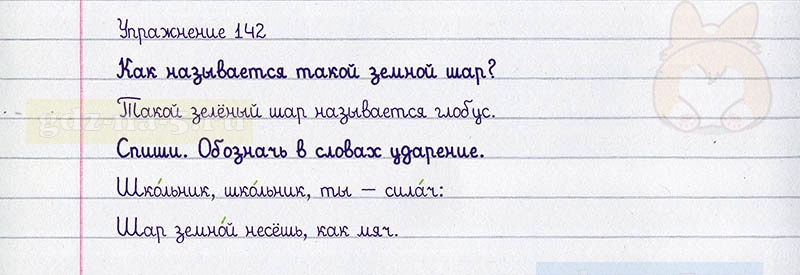 Упражнение 142
Как называется такой земной шар?
Такой зелёный шар называется глобус.
gdz-na-5.ru
Спиши. Обозначь в словах ударение.
Шко́льник, шко́льник, ты – сила́ч:
Шар земно́й несёшь, как мяч.